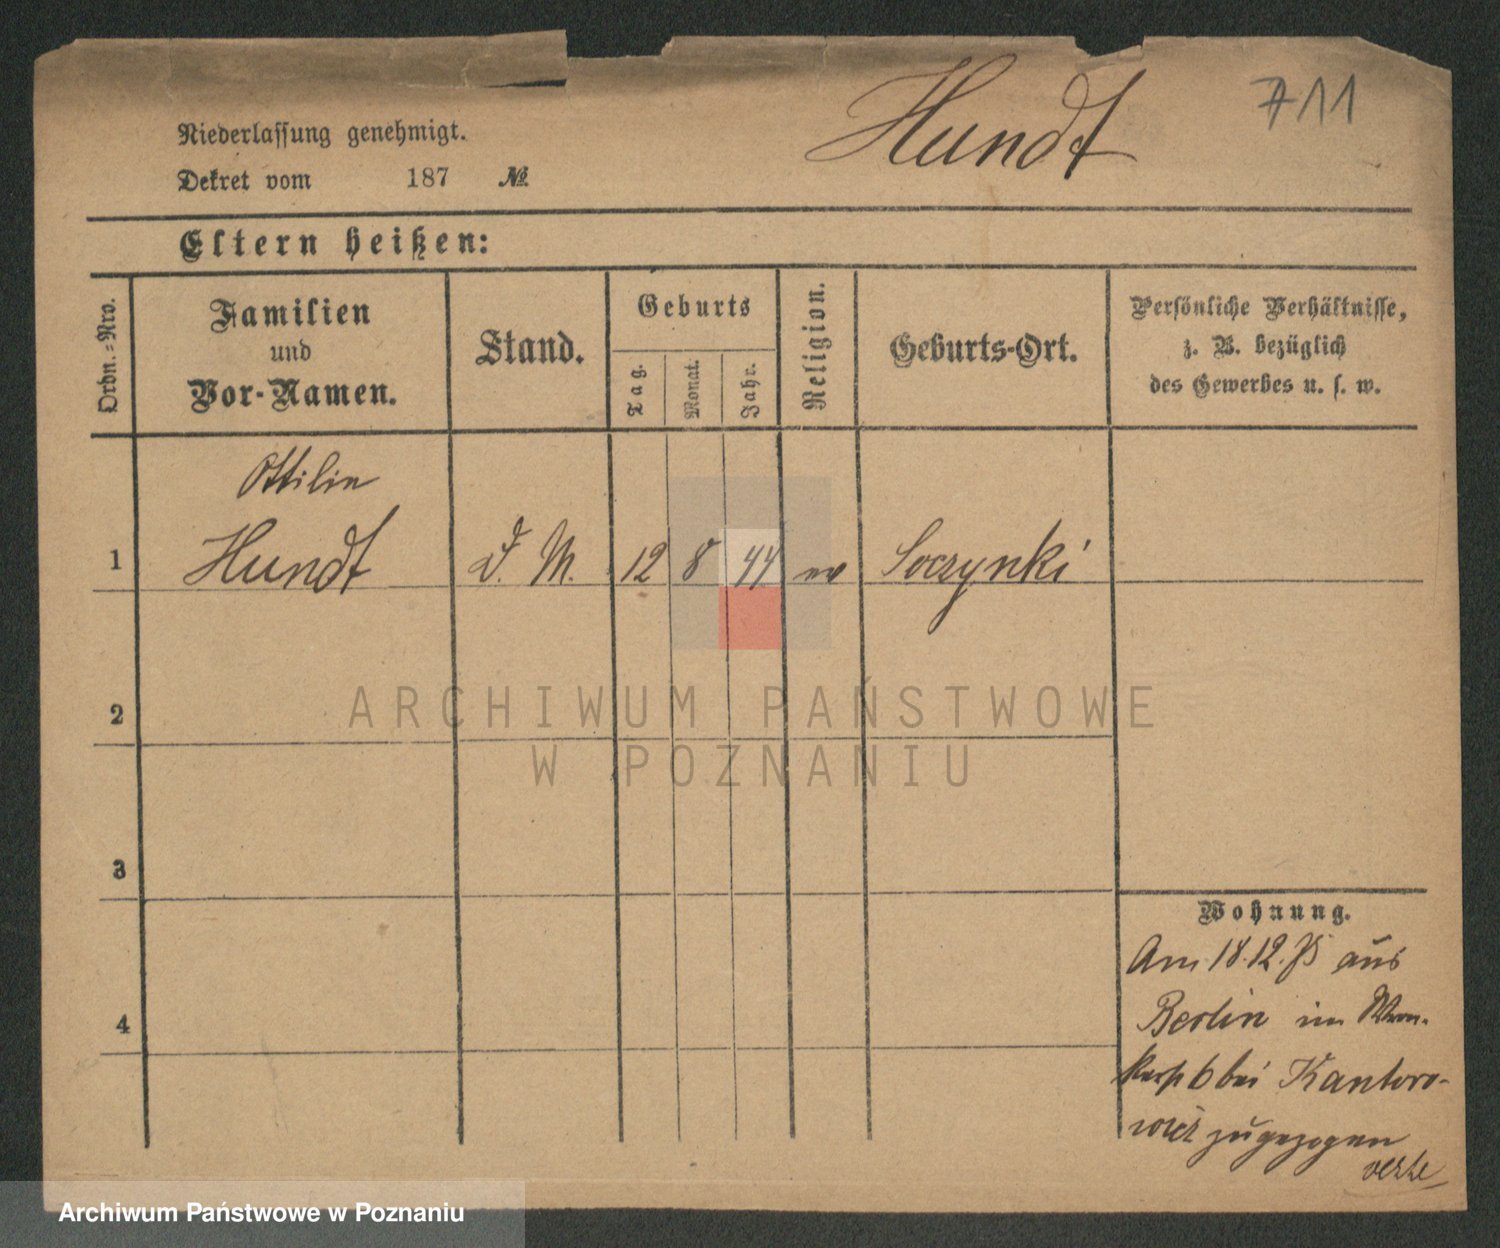 Hundt
711
Niederlassung genehmigt.
Dekret vom 187 №
Eltern heißen:
Ordn.-Nro.
Familien
und
Vor-Namen.
Stand.
Geburts
Tag.
Monat.
Jahr.
Religion.
Geburts-Ort.
Persönliche Verhältnisse,
z. B. bezüglich
des Gewerbes u. s. w.
Ottilie
1 Hundt D. M. 12 8 44 ev Soczynki
2
3
4
Wohnung.
Am 18.12.75 aus
Berlin in
6 bei Kantoro-
wicz zugezogen
verte
ARCHIWUM PAŃSTWOWE
W POZNANIU
Archiwum Państwowe w Poznaniu